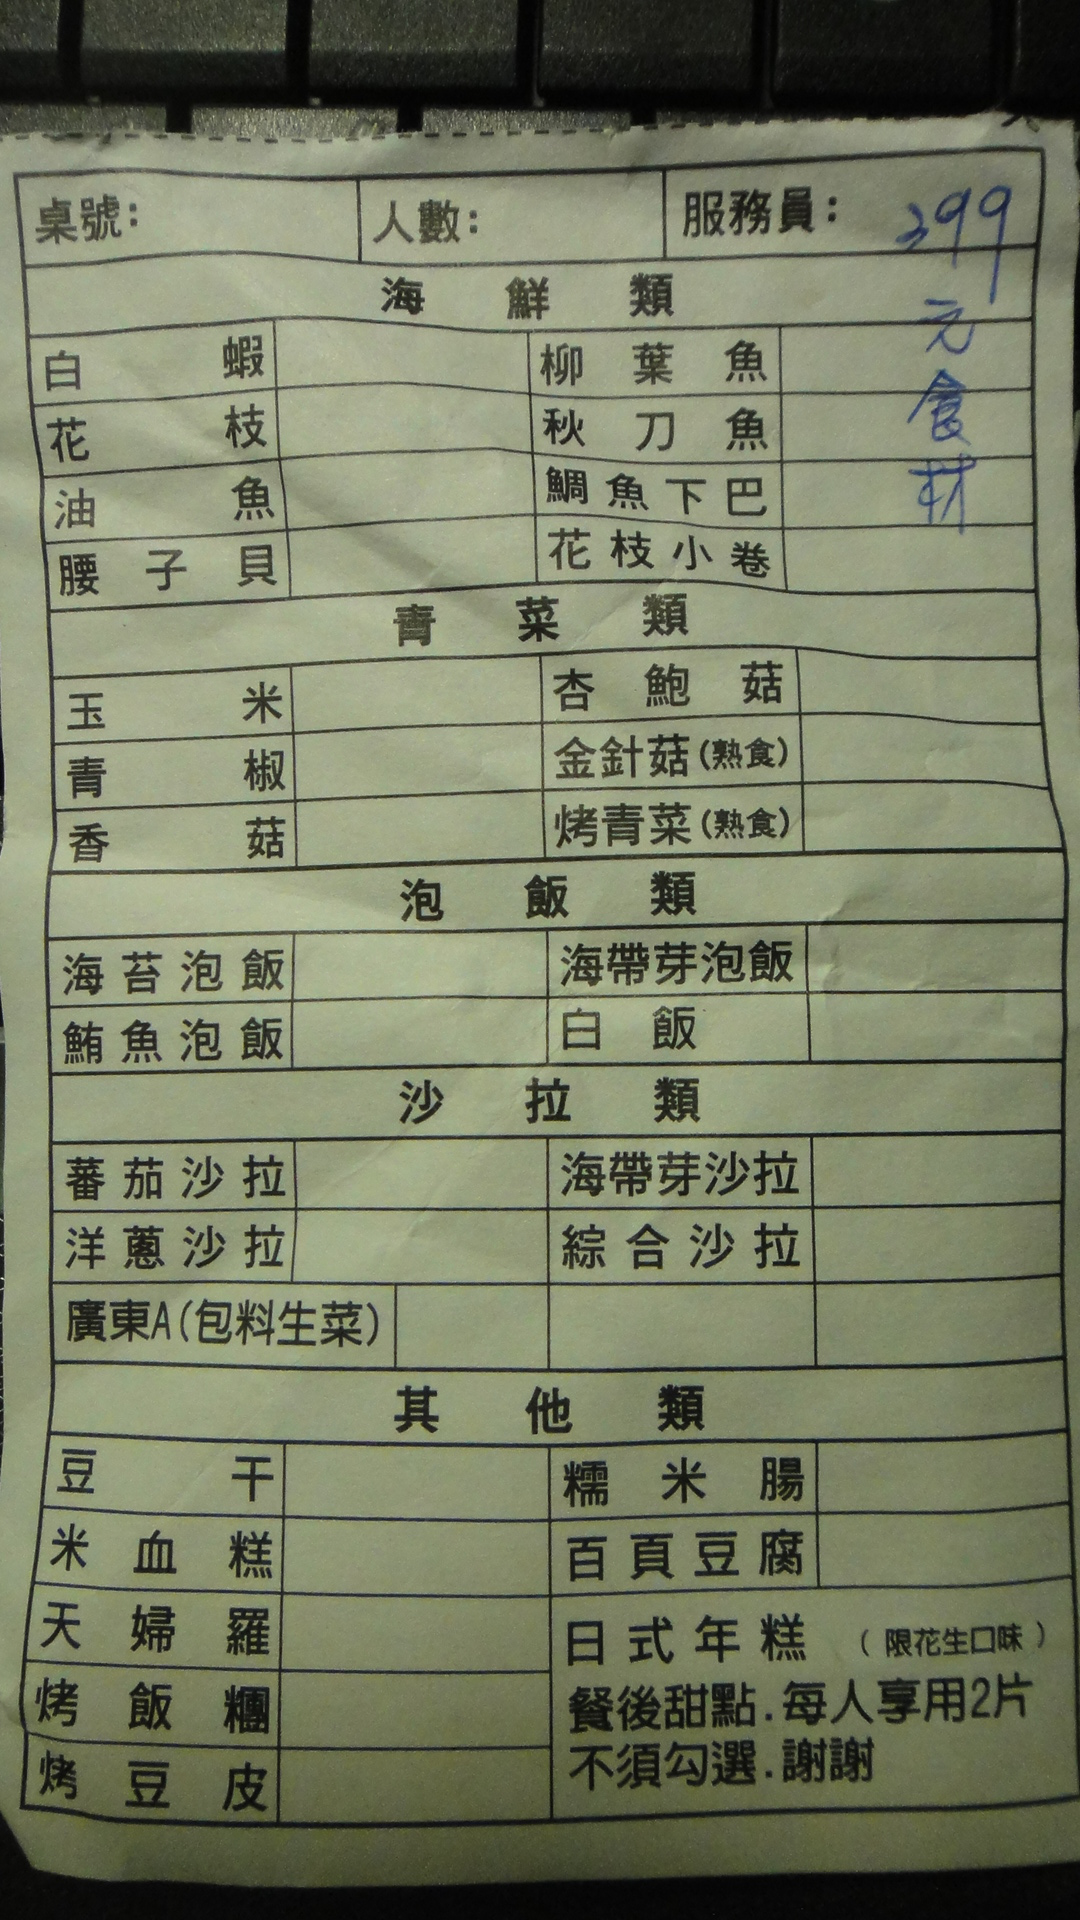 桌號: 人數: 服務員:
399元食材
海鮮類
白蝦 柳葉魚
花枝 秋刀魚
油魚 鯛魚下巴
腰子貝 花枝小卷
青菜類
玉米 杏鮑菇
青椒 金針菇(熟食)
香菇 烤青菜(熟食)
泡飯類
海苔泡飯 海帶芽泡飯
鮪魚泡飯 白飯
沙拉類
蕃茄沙拉 海帶芽沙拉
洋蔥沙拉 綜合沙拉
廣東A(包料生菜)
其他類
豆干 糯米腸
米血糕 百頁豆腐
天婦羅
烤飯糰
烤豆皮
日式年糕 (限花生口味)
餐後甜點.每人享用2片
不須勾選.謝謝